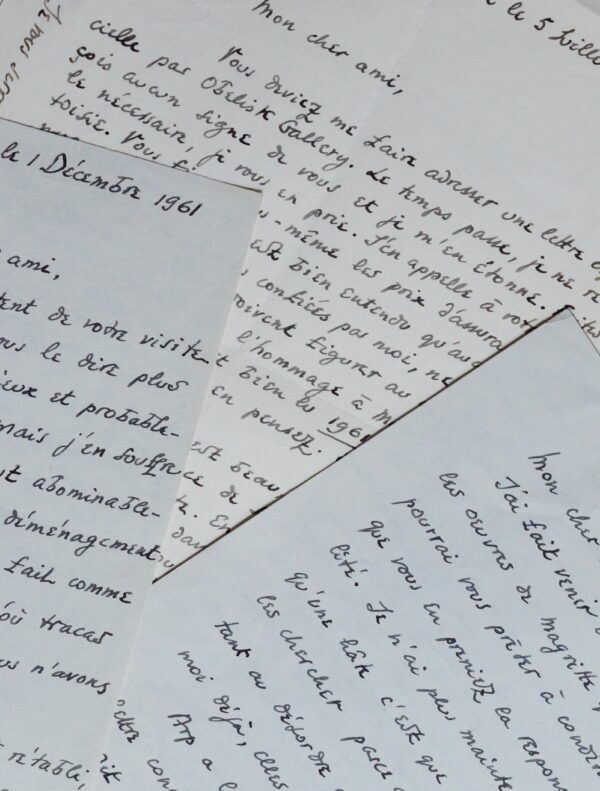 le 5 Juille
mon cher ami,
Vous deviez me faire adresser une lettre
cielle par Obelisk Gallery. Le temps passe, je ne re
çois aucun signe de vous et je m'en étonne.
le nécessaire, je vous en prie. J'en appelle à
toisie. Vous
-même les prix d'assura
est bien entendu qu'au
confiées par moi, ne
doivent figurer au
l'hommage à m
bien lu 196
en pensez.
est beau
En
Je vous
le 1 Décembre 1961
ami,
de votre visite
le dire plus
et probable-
mais j'en souffre
abominable-
déménagement
fait comme
où tracas
n'avons
rétabli,
mon cher
J'ai fait venir
les oeuvres de magritte
pourrai vous prêter à condi
que vous en preniez la respon
l'été. Je n'ai plus mainte
qu'une hâte c'est que
les chercher parce
tant au désordre
moi déjà, elles
Arp a